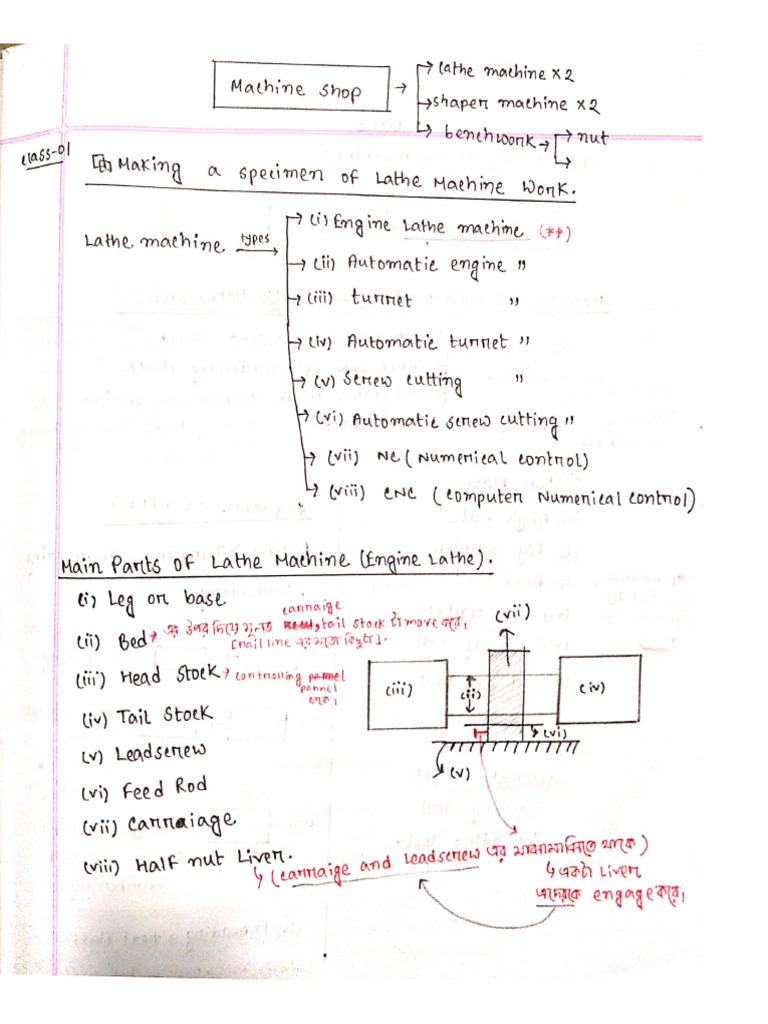 Machine shop → Lathe machine × 2
→ shaper machine × 2
→ benchwork → nut
class-01
Making a specimen of Lathe Machine Work.
Lathe machine types → (i) Engine Lathe machine (**)
(ii) Automatic engine "
(iii) turret "
(iv) Automatic turret "
(v) Screw cutting "
(vi) Automatic screw cutting "
(vii) NC (Numerical control)
(viii) CNC (Computer Numerical control)
Main Parts of Lathe Machine (Engine Lathe).
(i) Leg or base
(ii) Bed → এর উপর দিয়ে মূলত carraige, tail stock টা move করে।
[rail line এর মতো কিছুটা].
(iii) Head Stock → controlling pannel
pannel
থাকে।
(iv) Tail Stock
(v) Leadscrew
(vi) Feed Rod
(vii) Carraiage
(viii) Half nut Liver.
(vii)
(iii)
(ii)
(iv)
(vi)
(v)
↳ (carraige and leadscrew এর মাঝামাঝিতে থাকে)
↳ একটা Liver
এদেরকে engage করে।